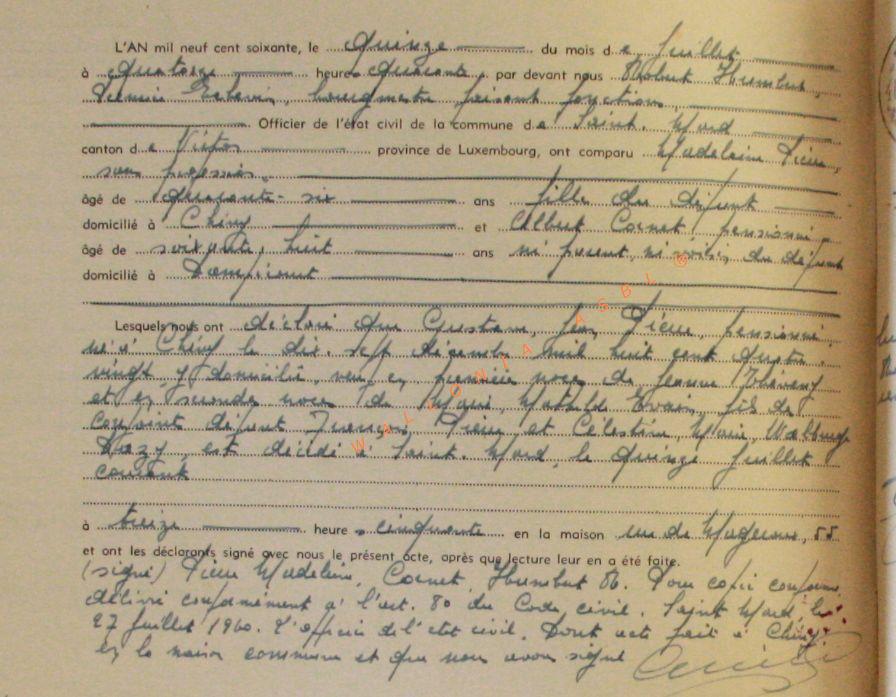 L'AN mil neuf cent soixante, le quinze du mois de Juillet
à quatorze heures quarante, par devant nous Robert Humbert,
Premier Echevin, bourgmestre faisant fonctions,
Officier de l'état civil de la commune de Saint-Mard
canton de Virton province de Luxembourg, ont comparu Madeleine Pierre,
sans profession,
âgé de quarante-six ans fille du défunt
domicilié à Chiny et Albert Cornet pensionné
âgé de soixante huit ans ni parent, ni voisin du défunt
domicilié à Dampicourt
Lesquels nous ont déclaré que Gustave, Jean, Pierre, pensionné,
né à Chiny le dix-sept décembre mil huit cent quatre
vingt, y domicilié, veuf en première noces de Jeanne
et en seconde noces de Marie, Mathilde Evrain, fils de
conjoint défunt François Pierre et Célestine, Marie, Walburge
Dazy, est décédé à Saint-Mard, le quinze Juillet
courant
à treize heures cinquante en la maison rue de 55
et ont les déclarants signé avec nous le présent acte, après que lecture leur en a été faite.
(signé) Pierre Madeleine, Cornet, Humbert R. Pour copie conforme
délivré conformément à l'art. 80 du Code civil. Saint Mard, le
27 Juillet 1960. L'officier de l'etat civil. Dont acte fait à Chiny
en la maison commune et que nous avons signé
WALLONIA ASBL ©